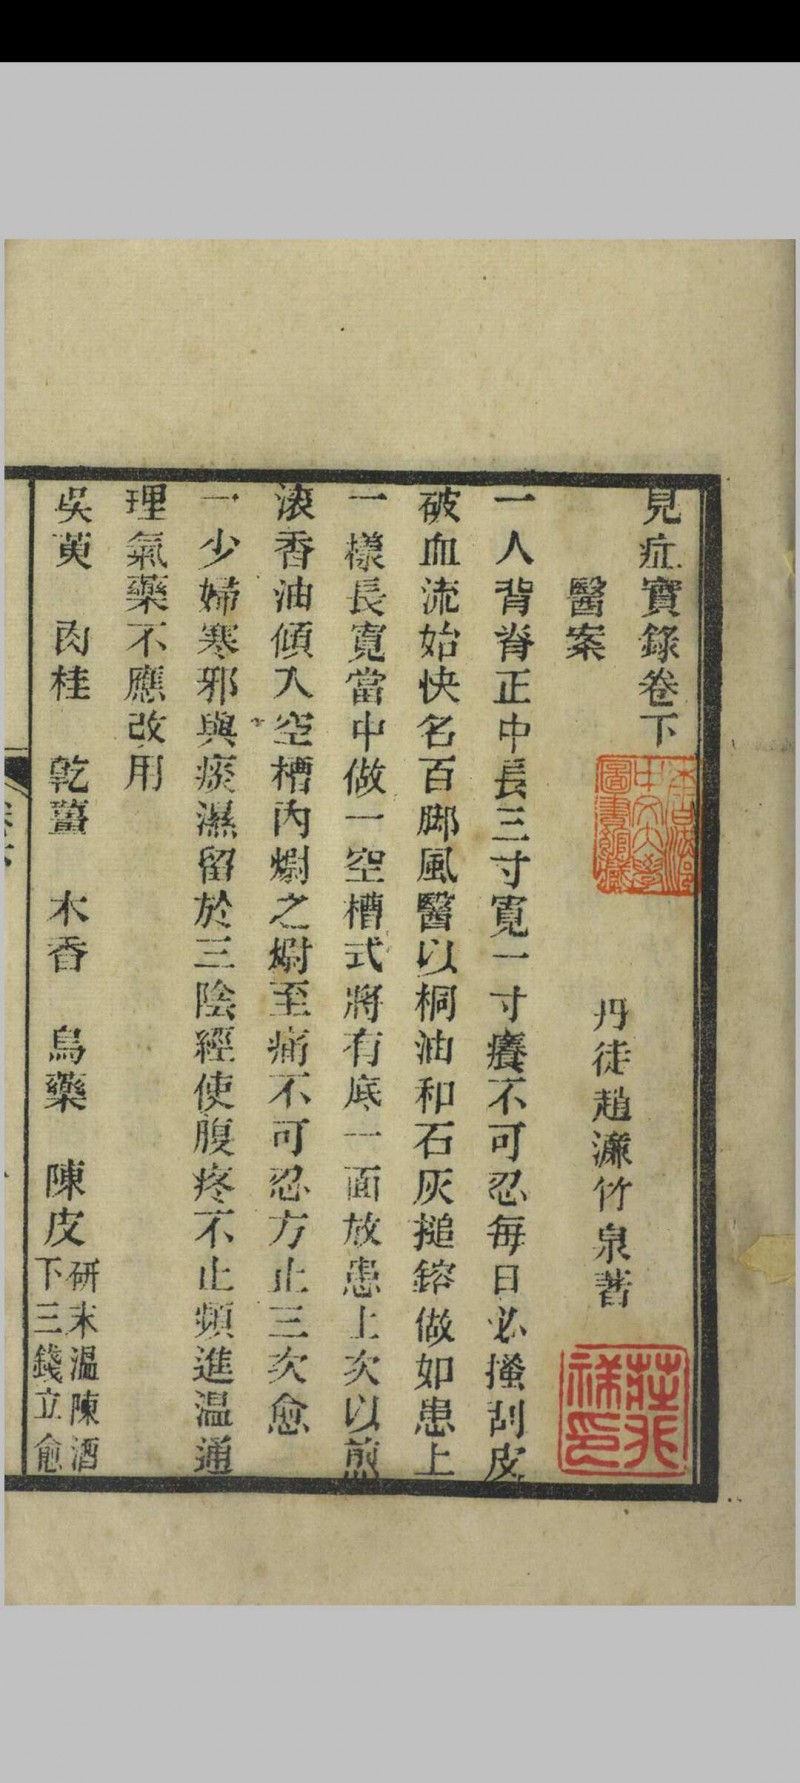 見症實錄卷下
丹徒趙濂竹泉著
醫案
一人背脊正中長三寸寬一寸癢不可忍每日必搔刮皮
破血流始快名百脚風醫以桐油和石灰搥鎔做如患上
一樣長寬當中做一空槽式將有底一面放患上次以煎
滚香油傾入空槽內爛之爛至痛不可忍方止三次愈
一少婦寒邪與痰濕留於三陰經使腹疼不止頻進溫通
理氣藥不應改用
吳萸 肉桂 乾薑 木香 烏藥 陳皮 研末溫陳酒
下三錢立愈